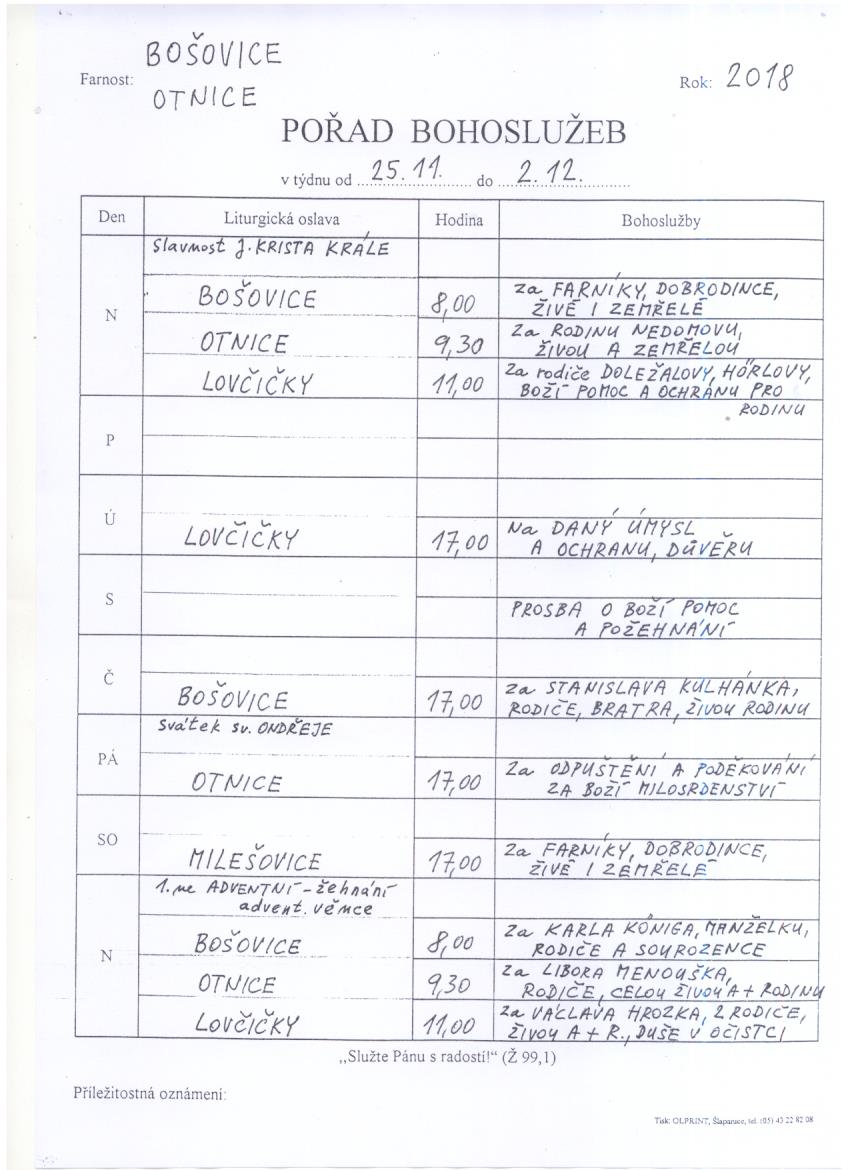 BOŠOVICE
Farnost:
OTNICE
Rok: 2018
POŘAD BOHOSLUŽEB
v týdnu od 25.11. do 2.12.
Den Liturgická oslava Hodina Bohoslužby
Slavnost J. KRISTA KRÁLE
N
BOŠOVICE 8,00 Za FARNÍKY, DOBRODINCE,
ŽIVÉ I ZEMŘELÉ
OTNICE 9,30 Za RODINU NEDOMOVU,
ŽIVOU A ZEMŘELOU
LOVČIČKY 11,00 Za rodiče DOLEŽALOVY, HÖRLOVY,
BOŽÍ POMOC A OCHRANU PRO
RODINU
P
Ú
LOVČIČKY 17,00 Na DANÝ ÚMYSL
A OCHRANU, DŮVĚRU
S
PROSBA O BOŽÍ POMOC
A POŽEHNÁNÍ
Č
BOŠOVICE 17,00 Za STANISLAVA KULHÁNKA,
RODIČE, BRATRA, ŽIVOU RODINU
Svátek sv. ONDŘEJE
PÁ
OTNICE 17,00 Za ODPUŠTĚNÍ A PODĚKOVÁNÍ
ZA BOŽÍ MILOSRDENSTVÍ
SO
MILEŠOVICE 17,00 Za FARNÍKY, DOBRODINCE,
ŽIVÉ I ZEMŘELÉ
1. ne ADVENTNÍ - žehnání
advent. věnce
N
BOŠOVICE 8,00 Za KARLA KÖNIGA, MANŽELKU,
RODIČE A SOUROZENCE
OTNICE 9,30 Za LIBORA MENOUŠKA,
RODIČE, CELOU ŽIVOU A + RODINU
LOVČIČKY 11,00 Za VÁCLAVA HROZKA, 2 RODIČE,
ŽIVOU A + R., DUŠE V OČISTCI
„Služte Pánu s radostí!“ (Ž 99,1)
Příležitostná oznámení:
Tisk: OLPRINT, Šlapanice, tel. (05) 43 22 82 08